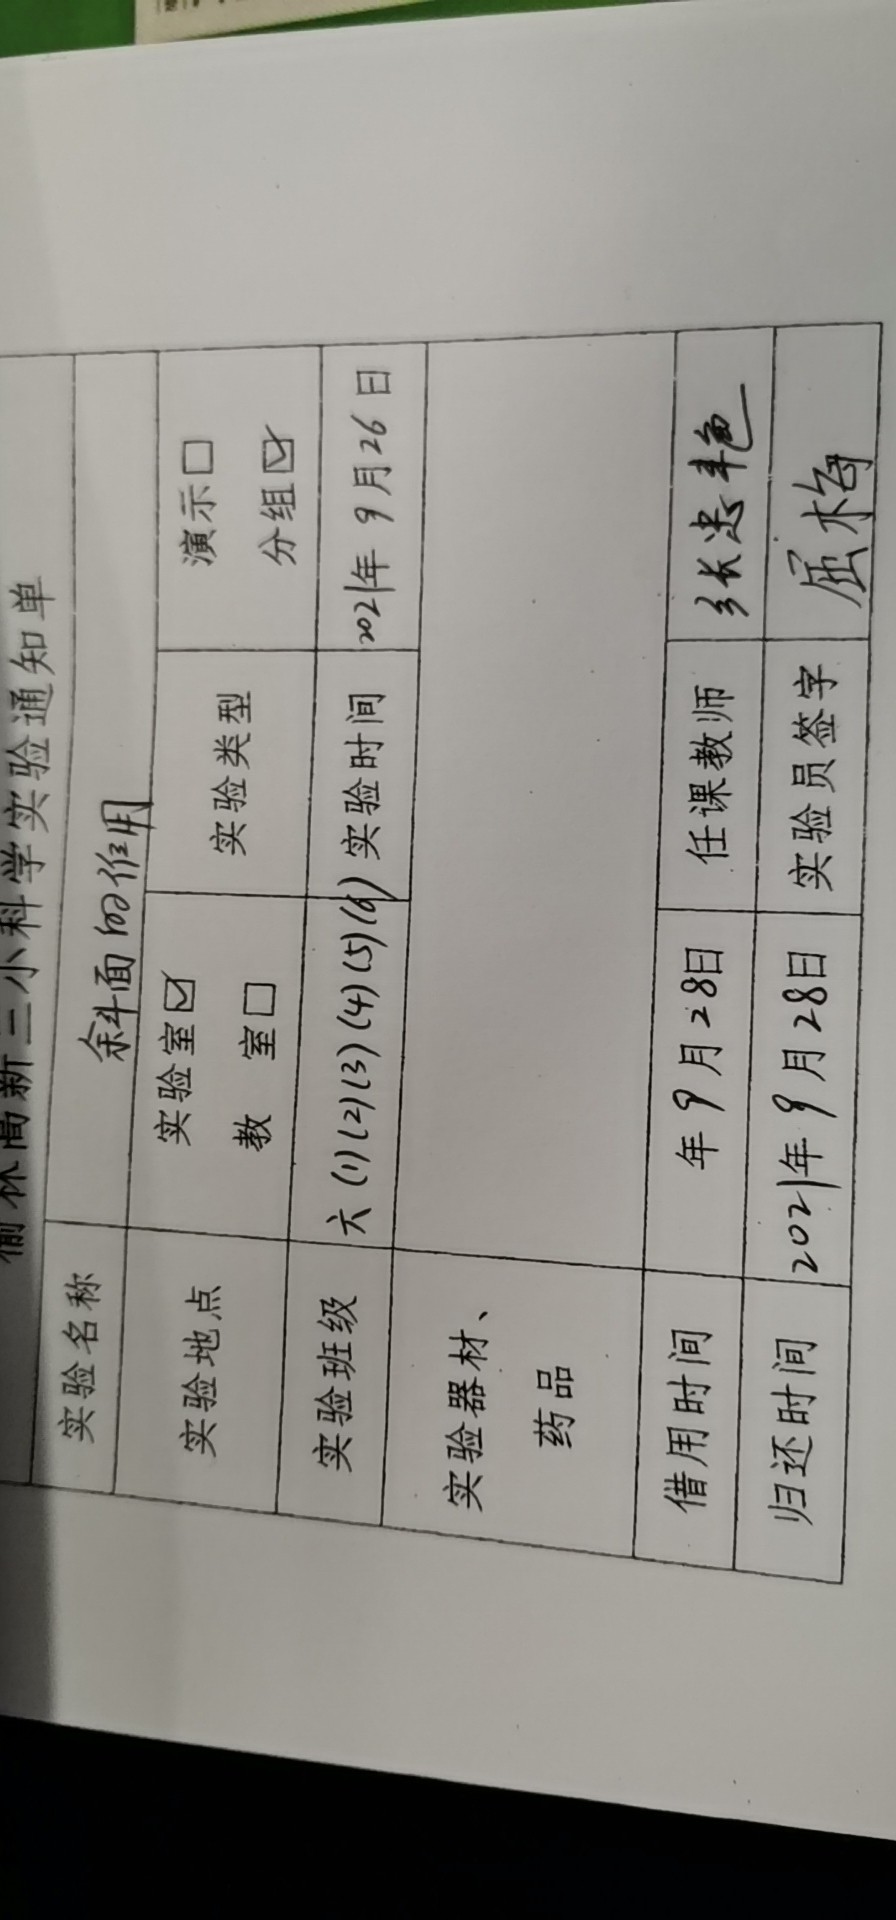 榆林高新三小科学实验通知单
实验名称 斜面的作用
实验地点 实验室☑ 教 室□ 实验类型 演示□ 分组☑
实验班级 六(1)(2)(3)(4)(5)(6) 实验时间 2021年9月26日
实验器材、
药品
借用时间 年9月28日 任课教师 张忠艳
归还时间 2021年9月28日 实验员签字 屈梅